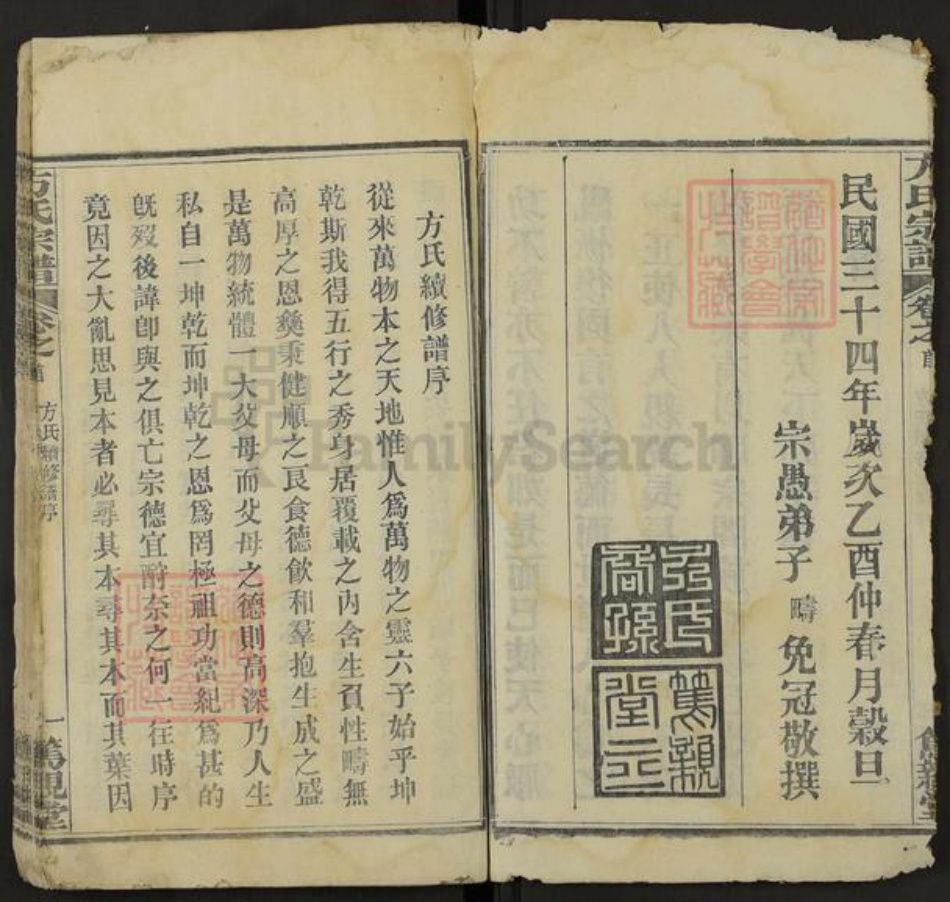 方氏宗譜
卷之首
民國三十四年歲次乙酉仲春月穀旦
宗愚弟子 疇 免冠敬撰
篤親堂
方氏續修譜序
從來萬物本之天地惟人爲萬物之靈六子始乎坤
乾斯我得五行之秀身居覆載之內含生負性疇無
高厚之恩彜秉健順之良食德飲和羣抱生成之盛
是萬物統體一大父母而父母之德則高深乃人生
私自一坤乾而坤乾之恩爲罔極祖功當紀爲甚的
旣歿後諱卽與之俱亡宗德宜酧奈之何一徃時序
竟因之大亂思見本者必尋其本尋其本而其葉因
方氏宗譜
卷之首
方氏續修譜序
一
篤親堂
FamilySearch